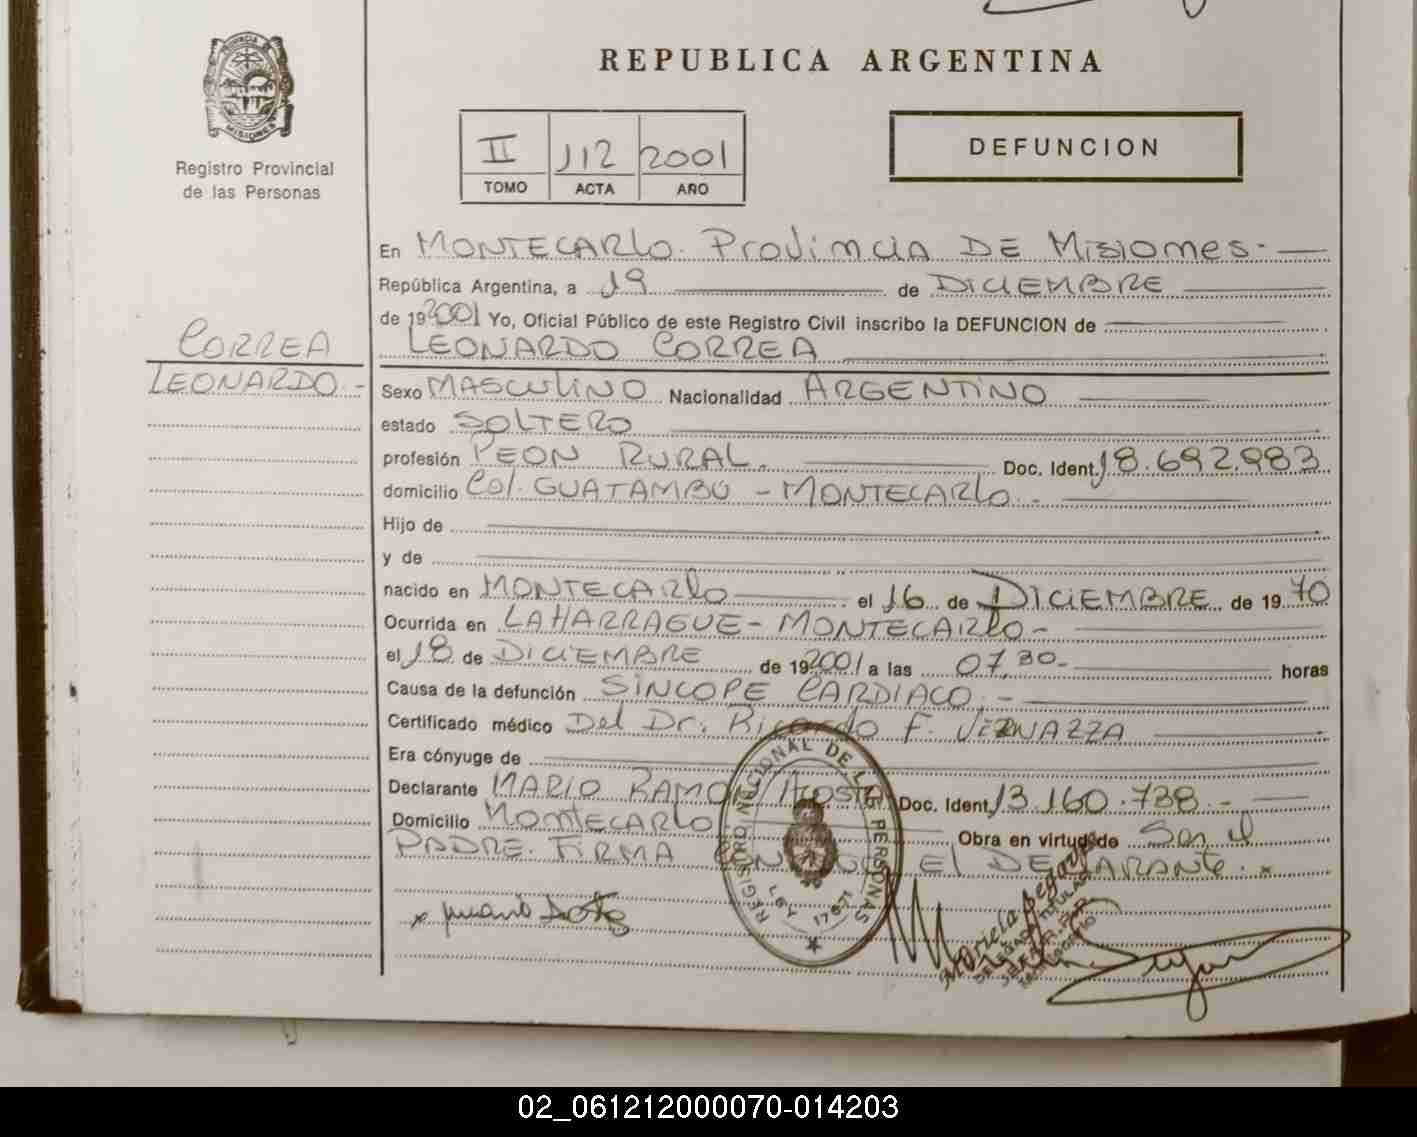 PROVINCIA DE
MISIONES
Registro Provincial
de las Personas
REPUBLICA ARGENTINA
II 112 2001
TOMO ACTA AÑO
DEFUNCION
CORREA
LEONARDO.-
En MONTECARLO. Provincia DE Misiones.-
República Argentina, a 19 de DICIEMBRE
de 192001 Yo, Oficial Público de este Registro Civil inscribo la DEFUNCION de
LEONARDO CORREA
Sexo MASCULINO Nacionalidad ARGENTINO
estado SOLTERO
profesión PEON RURAL. Doc. Ident. 18.692.983
domicilio Col. GUATAMBU - MONTECARLO.-
Hijo de
y de
nacido en MONTECARLO el 16 de DICIEMBRE de 1970
Ocurrida en LAHARRAGUE - MONTECARLO -
el 18 de DICIEMBRE de 192001 a las 07,30- horas
Causa de la defunción SINCOPE CARDIACO.-
Certificado médico Del Dr. Ricardo F. VERNAZZA
Era cónyuge de
Declarante MARIO RAMON Acosta Doc. Ident. 13.160.738.-
Domicilio MONTECARLO Obra en virtud de Ser el
PADRE. FIRMA El DECLARANTE. x
REGISTRO NACIONAL DE LAS PERSONAS
LEY 17671
x
Mariela Segovia
02_061212000070-014203